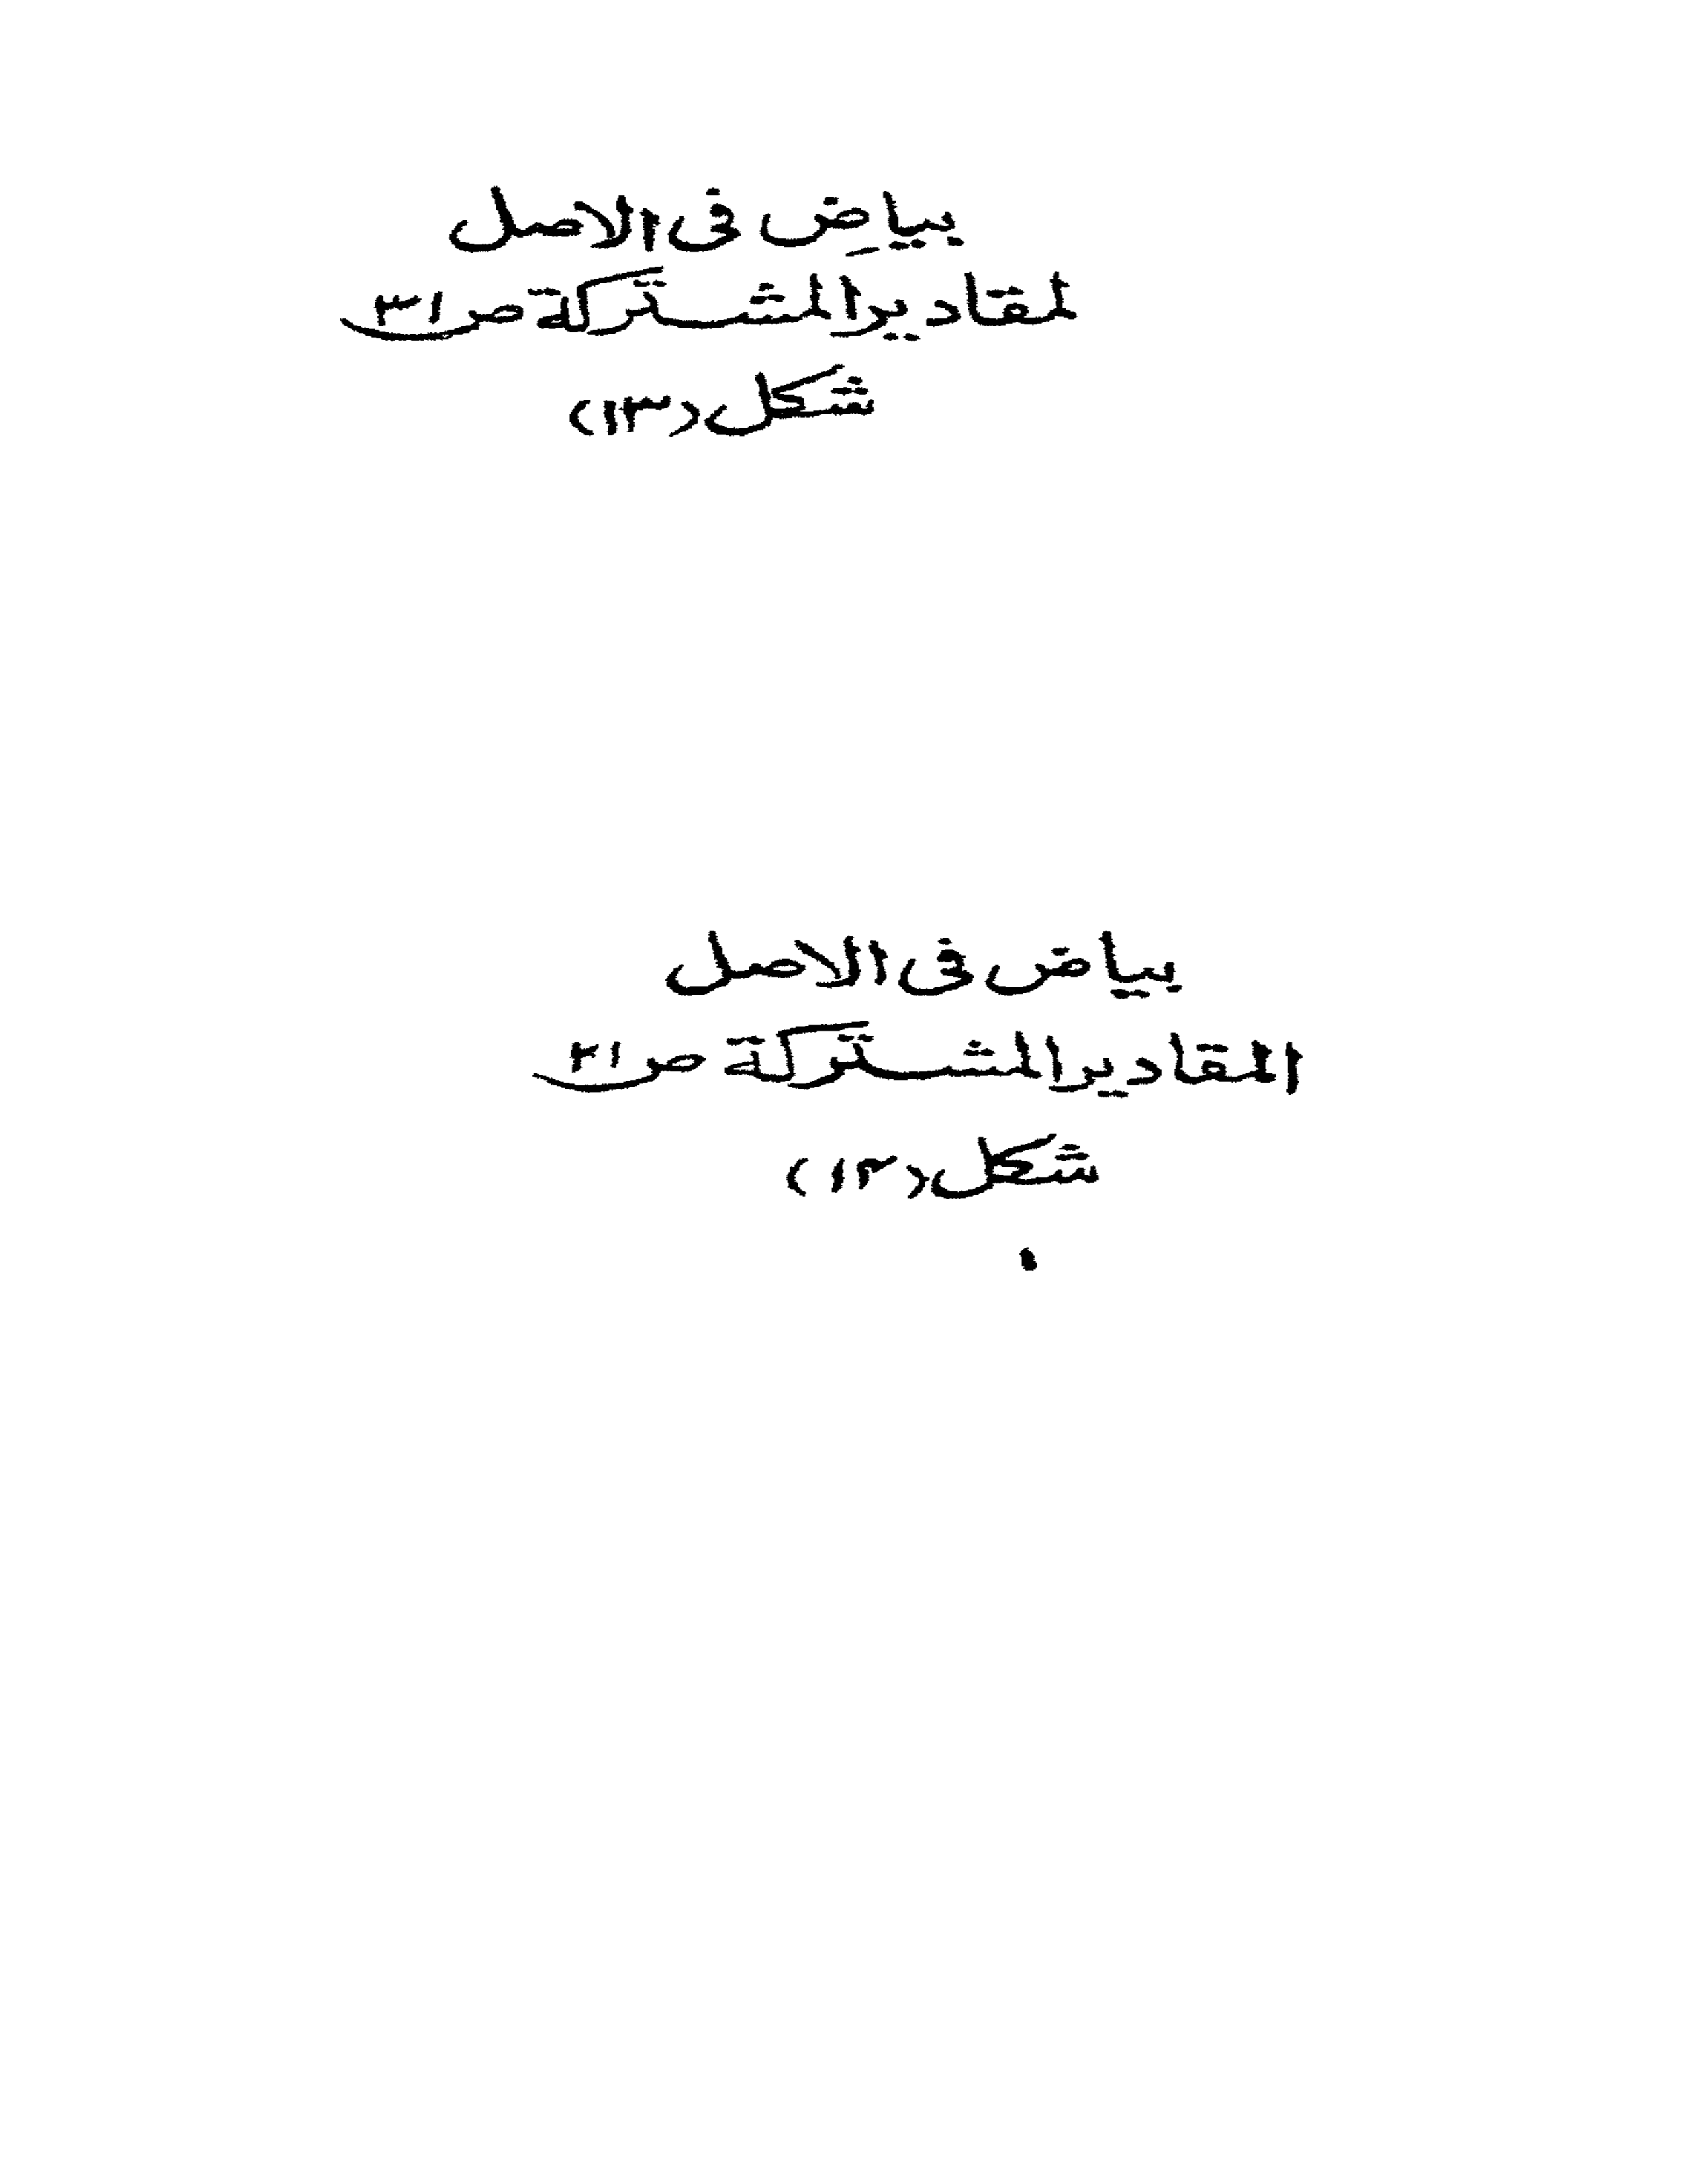 بياض فى الاصل
لمقادير المشتركة ص ٣١
شكل (١٣)
بياض فى الاصل
المقادير المشتركة ص ٢١
شكل (١٢)